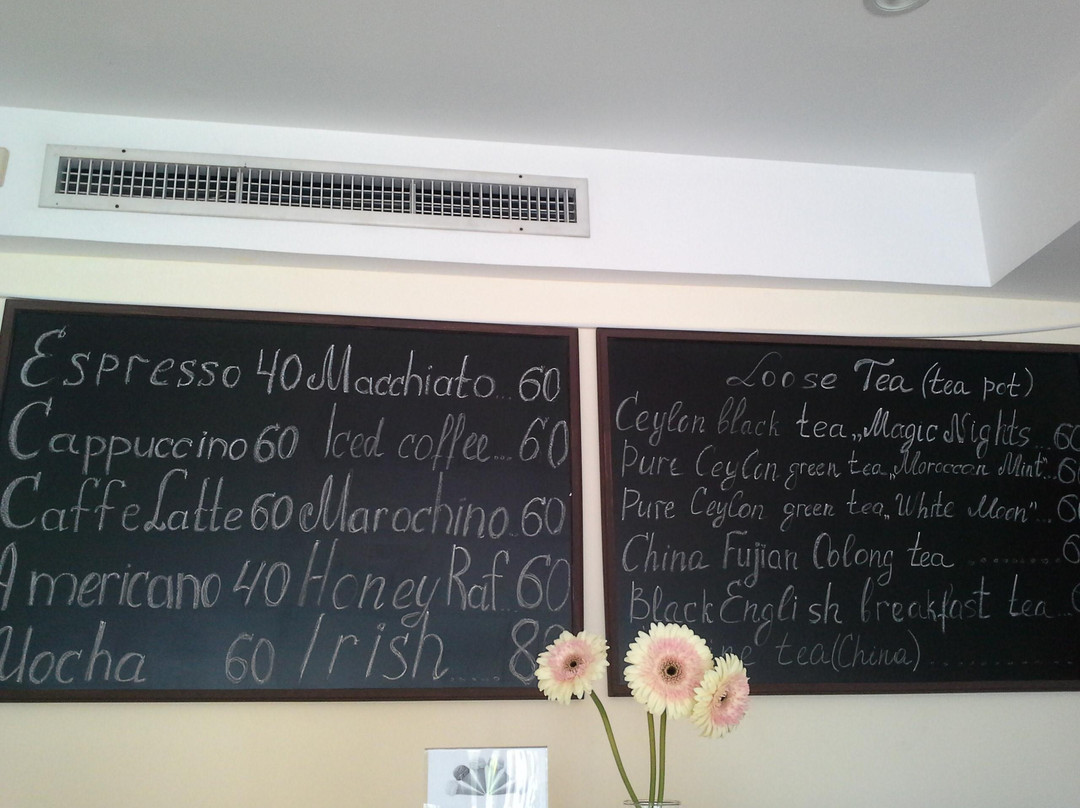 Espresso 40 Macchiato... 60
Cappuccino 60 Iced coffee... 60
Caffe Latte 60 Marochino.. 60
Americano 40 Honey Raf.. 60
Mocha 60 Irish.....
Loose Tea (tea pot)
Ceylon black tea „Magic Nights...
Pure Ceylon green tea „Moroccan Mint"...
Pure Ceylon green tea „White Moon"...
China Fujian Oolong tea ........
Black English breakfast tea...
tea (China) ............